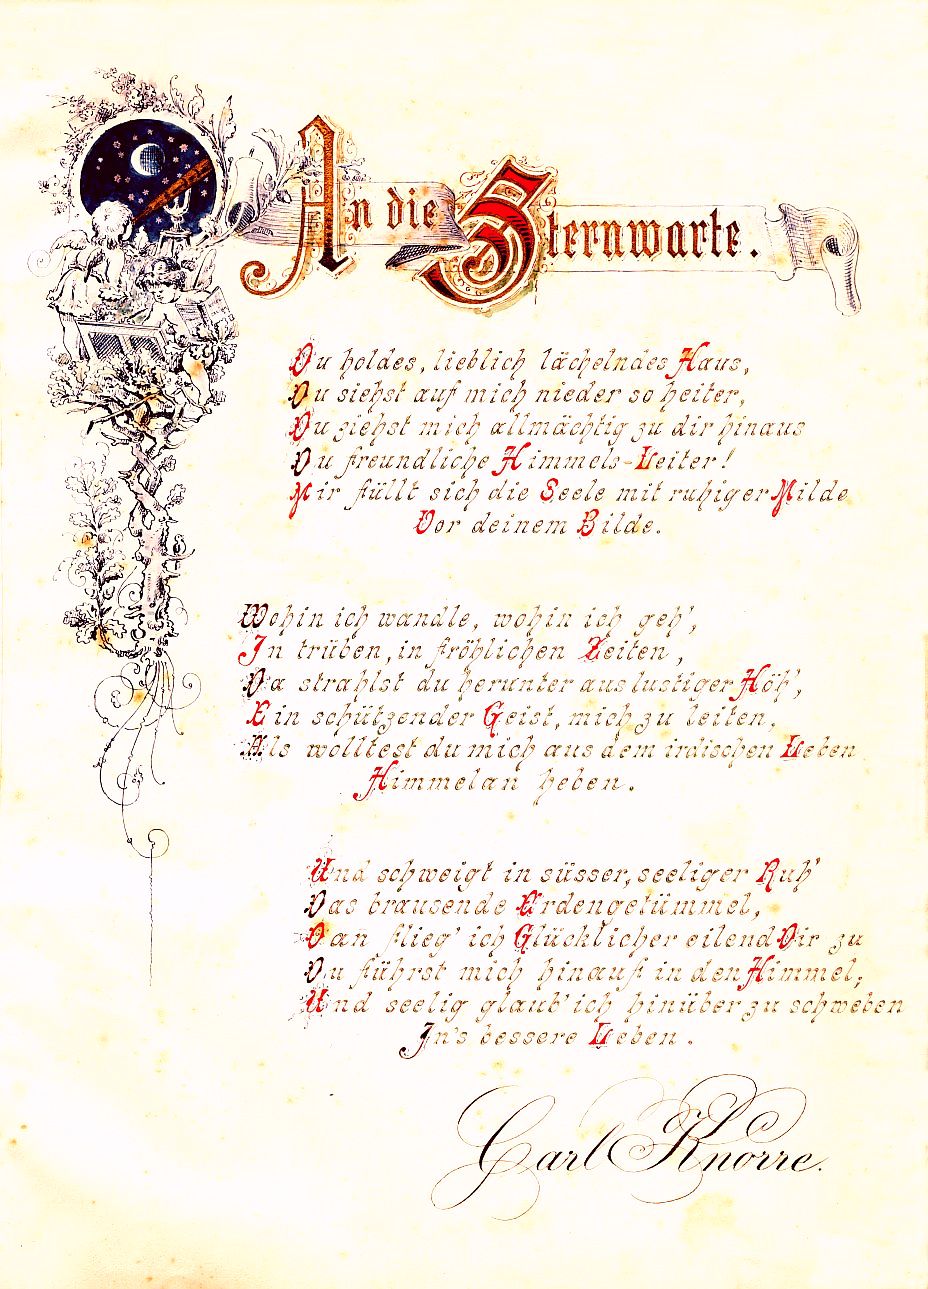 An die Sternwarte.
Du holdes, lieblich lächelndes Haus,
Du siehst auf mich nieder so heiter,
Du ziehst mich allmächtig zu dir hinaus
Du freundliche Himmels-Leiter!
Mir füllt sich die Seele mit ruhiger Milde
Vor deinem Bilde.
Wohin ich wandle, wohin ich geh',
In trüben, in fröhlichen Zeiten,
Da strahlst du herunter aus lustiger Höh',
Ein schützender Geist, mich zu leiten,
Als wolltest du mich aus dem irdischen Leben
Himmelan heben.
Und schweigt in süsser, seeliger Ruh'
Das brausende Erdengetümmel,
Dan flieg' ich Glücklicher eilend Dir zu
Du führst mich hinauf in den Himmel;
Und seelig glaub' ich hinüber zu schweben
In's bessere Leben.
Carl Knorre.